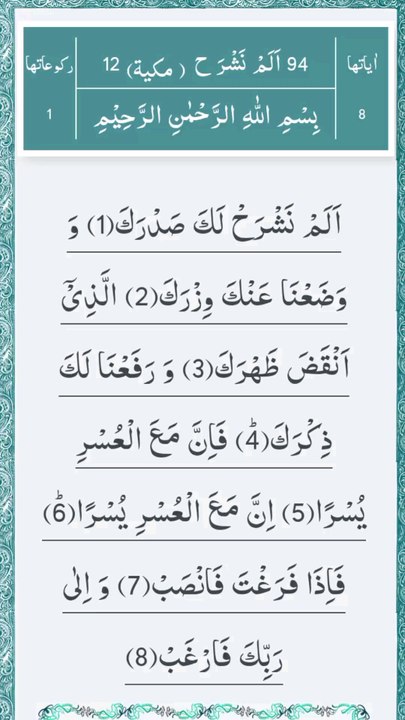 اٰیاتها
8
94 اَلَمْ نَشْرَ ح ( مكية) 12
بِسْمِ اللّٰهِ الرَّحْمٰنِ الرَّحِیْمِ
ركوعاتها
1
اَلَمْ نَشْرَحْ لَكَ صَدْرَكَ(1) وَ
وَضَعْنَا عَنْكَ وِزْرَكَ(2) الَّذِیْۤ
اَنْقَضَ ظَهْرَكَ(3) وَ رَفَعْنَا لَكَ
ذِكْرَكَ(4)ؕ فَاِنَّ مَعَ الْعُسْرِ
یُسْرًا(5) اِنَّ مَعَ الْعُسْرِ یُسْرًا(6)ؕ
فَاِذَا فَرَغْتَ فَانْصَبْ(7) وَ اِلٰى
رَبِّكَ فَارْغَبْ(8)